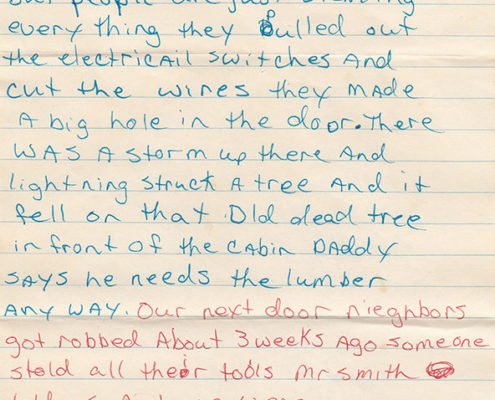 every thing they pulled out
the electricail switches And
cut the wires they mADe
A big hole in the door. There
WAS A storm up there And
lightning struck A tree And it
fell on that Old dead tree
in front of the cABin DADDy
SAYS he needs the lumber
ANy WAY. Our next door nieghbors
got robbed About 3 weeks Ago someone
stold all their tools Mr smith